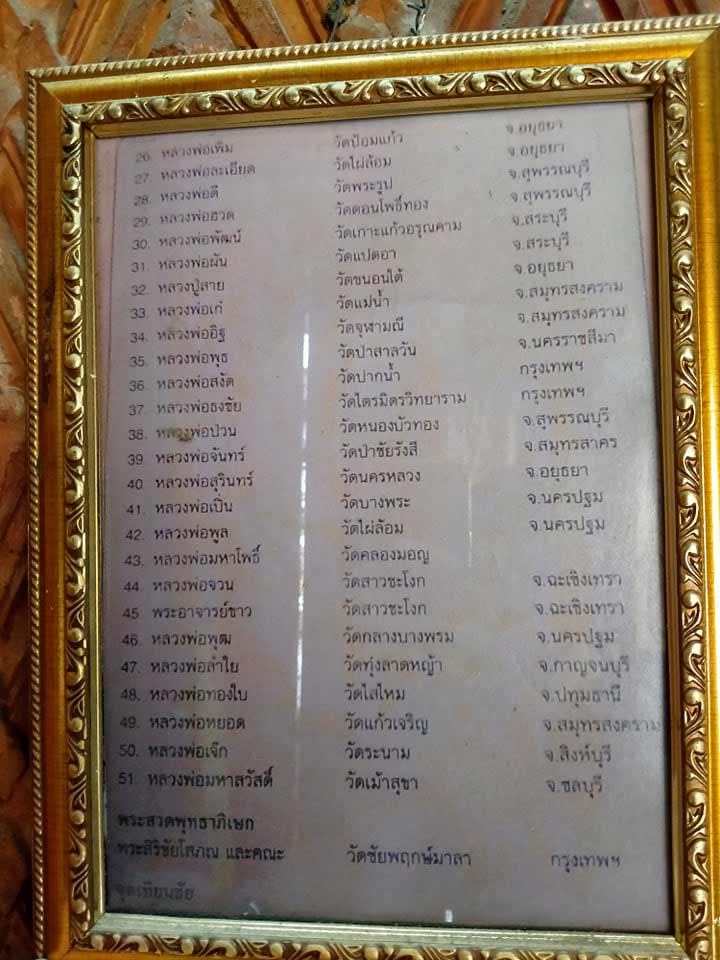 26. หลวงพ่อเพิ่ม วัดป้อมแก้ว จ.อยุธยา
27. หลวงพ่อละเอียด วัดไผ่ล้อม จ.อยุธยา
28. หลวงพ่อดี วัดพระรูป จ.สุพรรณบุรี
29. หลวงพ่อฮวด วัดดอนโพธิ์ทอง จ.สุพรรณบุรี
30. หลวงพ่อพัฒน์ วัดเกาะแก้วอรุณคาม จ.สระบุรี
31. หลวงพ่อผัน วัดแปดอา จ.สระบุรี
32. หลวงปู่สาย วัดขนอนใต้ จ.อยุธยา
33. หลวงพ่อเก๋ วัดแม่น้ำ จ.สมุทรสงคราม
34. หลวงพ่ออิฐ วัดจุฬามณี จ.สมุทรสงคราม
35. หลวงพ่อพุธ วัดป่าสาลวัน จ.นครราชสีมา
36. หลวงพ่อสงัด วัดปากน้ำ กรุงเทพฯ
37. หลวงพ่อธงชัย วัดไตรมิตรวิทยาราม กรุงเทพฯ
38. หลวงพ่อป่วน วัดหนองบัวทอง จ.สุพรรณบุรี
39 หลวงพ่อจันทร์ วัดป่าชัยรังสี จ.สมุทรสาคร
40 หลวงพ่อสุรินทร์ วัดนครหลวง จ.อยุธยา
41. หลวงพ่อเปิ่น วัดบางพระ จ.นครปฐม
42. หลวงพ่อพูล วัดไผ่ล้อม จ.นครปฐม
43. หลวงพ่อมหาโพธิ์ วัดคลองมอญ
44 หลวงพ่อจวน วัดสาวชะโงก จ.ฉะเชิงเทรา
45 พระอาจารย์ขาว วัดสาวชะโงก จ.ฉะเชิงเทรา
46 หลวงพ่อพุฒ วัดกลางบางพรม จ.นครปฐม
47. หลวงพ่อลำใย วัดทุ่งลาดหญ้า จ.กาญจนบุรี
48. หลวงพ่อทองใบ วัดไสไหม จ.ปทุมธานี
49. หลวงพ่อหยอด วัดแก้วเจริญ จ.สมุทรสงคราม
50. หลวงพ่อเจ๊ก วัดระนาม จ.สิงห์บุรี
51. หลวงพ่อมหาสวัสดิ์ วัดเม้าสุขา จ.ชลบุรี
พระสวดพุทธาภิเษก
พระสิริชัยโสภณ และคณะ วัดชัยพฤกษ์มาลา กรุงเทพฯ
จุดเทียนชัย